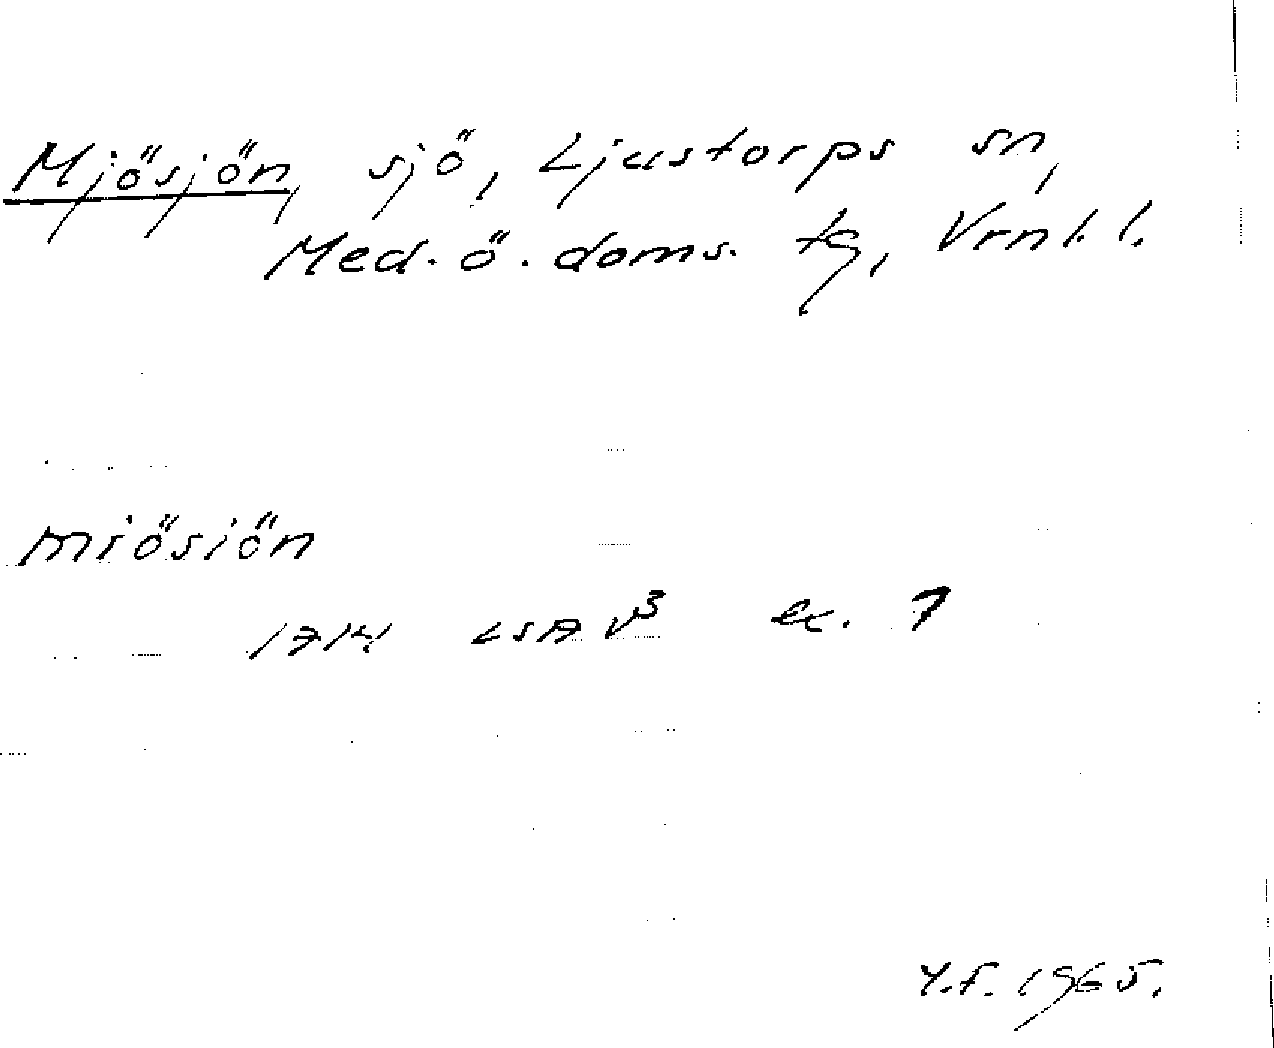 Mjösjön, sjö, Ljustorps sn,
Med. ö. doms. tg, Vrnl. l.
miösiön
1714 LSA V³ ex. 7
Y.F. 1965.